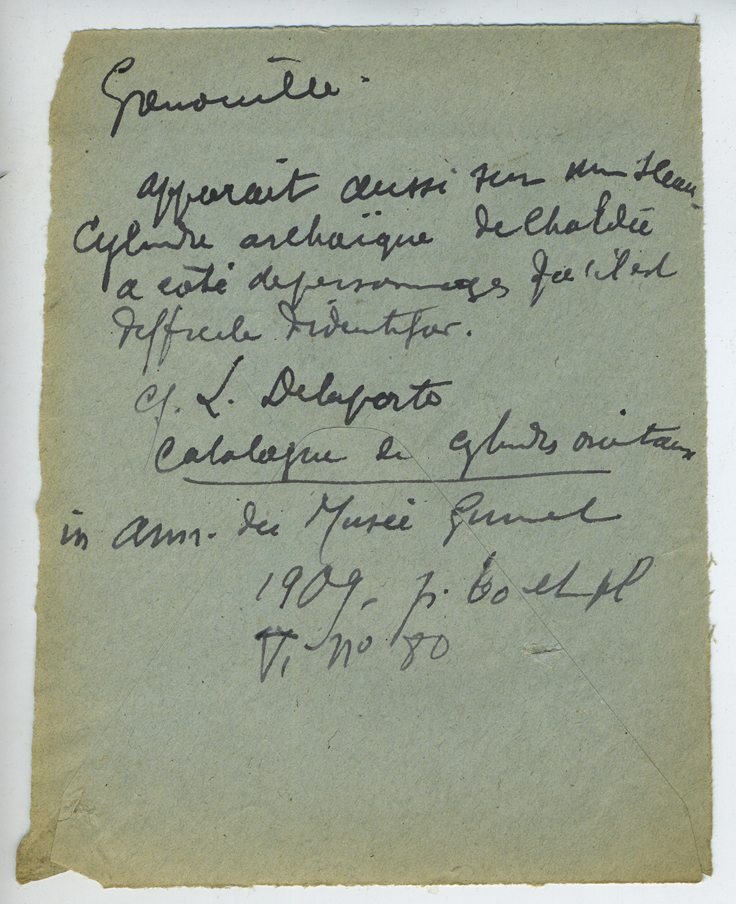 Grenouille.
apparait aussi sur un sceau-
cylindre archaïque de Chaldée
a coté de personnages qu'il est
difficile d'identifier.
cf. L. Delaporte
catalogue de cylindres orientaux
in Ann. du Musée Guimet
1909, p. 60 et pl
V, no 80